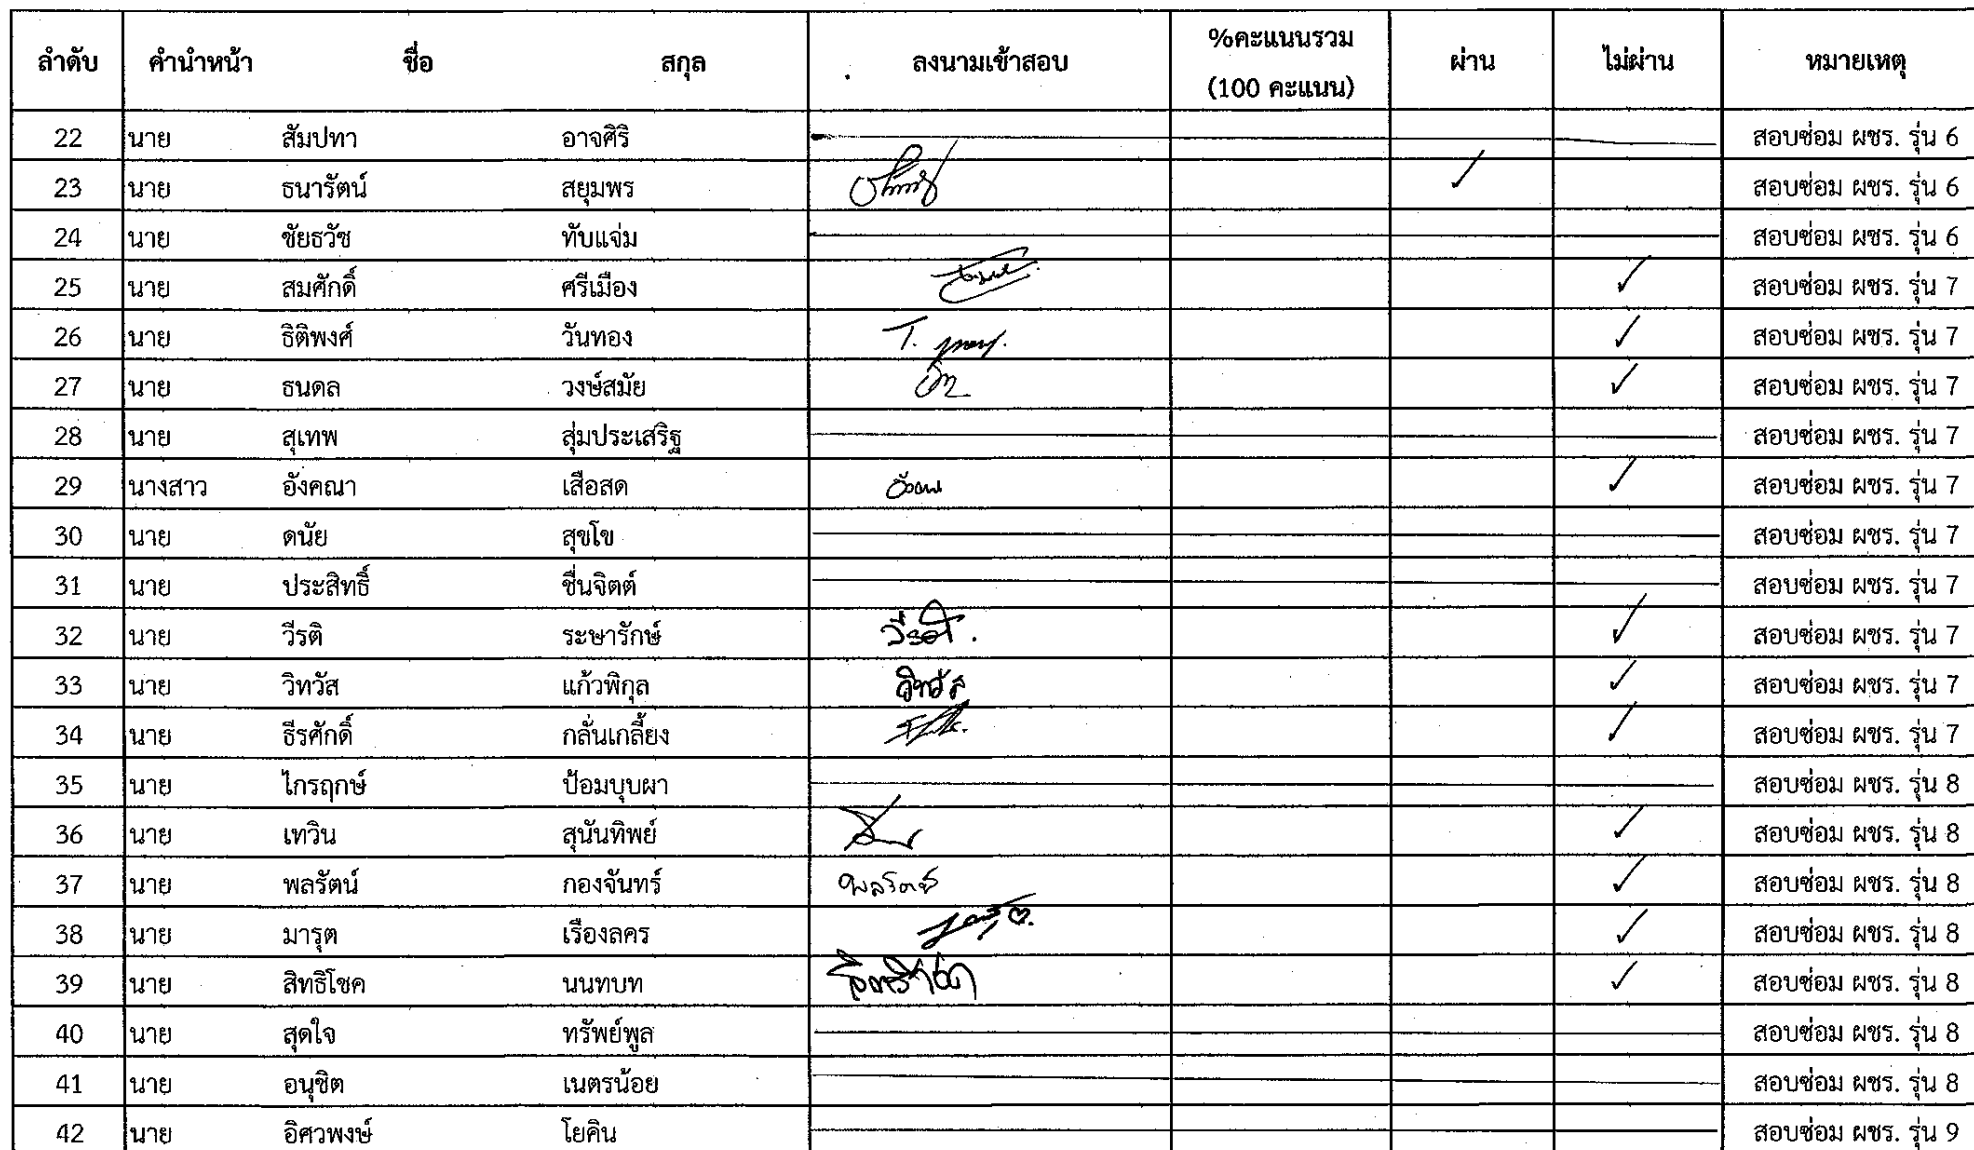 ลำดับ คำนำหน้า ชื่อ สกุล ลงนามเข้าสอบ %คะแนนรวม (100 คะแนน) ผ่าน ไม่ผ่าน หมายเหตุ
22 นาย สัมปทา อาจศิริ สอบซ่อม ผชร. รุ่น 6
23 นาย ธนารัตน์ สยุมพร ✓ สอบซ่อม ผชร. รุ่น 6
24 นาย ชัยธวัช ทับแจ่ม สอบซ่อม ผชร. รุ่น 6
25 นาย สมศักดิ์ ศรีเมือง ✓ สอบซ่อม ผชร. รุ่น 7
26 นาย ธิติพงศ์ วันทอง T. ✓ สอบซ่อม ผชร. รุ่น 7
27 นาย ธนดล วงษ์สมัย ✓ สอบซ่อม ผชร. รุ่น 7
28 นาย สุเทพ สุ่มประเสริฐ สอบซ่อม ผชร. รุ่น 7
29 นางสาว อังคณา เสือสด ✓ สอบซ่อม ผชร. รุ่น 7
30 นาย ดนัย สุขโข สอบซ่อม ผชร. รุ่น 7
31 นาย ประสิทธิ์ ชื่นจิตต์ สอบซ่อม ผชร. รุ่น 7
32 นาย วีรติ ระษารักษ์ วีรติ. ✓ สอบซ่อม ผชร. รุ่น 7
33 นาย วิทวัส แก้วพิกุล วิทวัส ✓ สอบซ่อม ผชร. รุ่น 7
34 นาย ธีรศักดิ์ กลั่นเกลี้ยง ✓ สอบซ่อม ผชร. รุ่น 7
35 นาย ไกรฤกษ์ ป้อมบุบผา สอบซ่อม ผชร. รุ่น 8
36 นาย เทวิน สุนันทิพย์ ✓ สอบซ่อม ผชร. รุ่น 8
37 นาย พลรัตน์ กองจันทร์ พลรัตน์ ✓ สอบซ่อม ผชร. รุ่น 8
38 นาย มารุต เรืองลคร ✓ สอบซ่อม ผชร. รุ่น 8
39 นาย สิทธิโชค นนทบท สิทธิโชค ✓ สอบซ่อม ผชร. รุ่น 8
40 นาย สุดใจ ทรัพย์พูล สอบซ่อม ผชร. รุ่น 8
41 นาย อนุชิต เนตรน้อย สอบซ่อม ผชร. รุ่น 8
42 นาย อิศวพงษ์ โยคิน สอบซ่อม ผชร. รุ่น 9